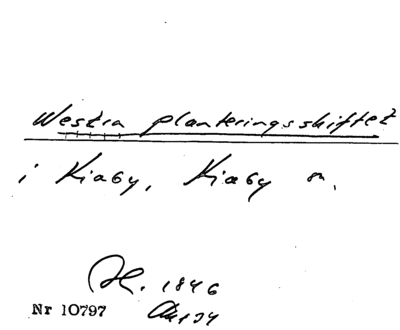 Westra planteringsskiftet
i Kiaby, Kiaby sn.
H. 1846
Nr 10797